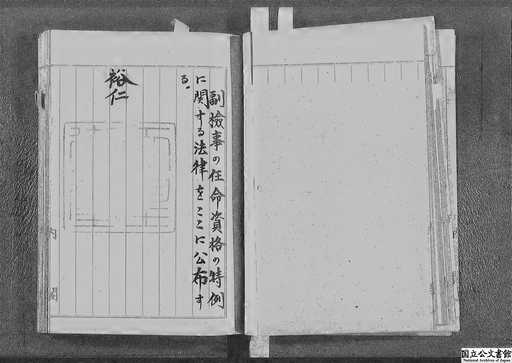 副検事の任命資格の特例
に関する法律をここに公布す
る。
裕仁
内閣
国立公文書館
National Archives of Japan